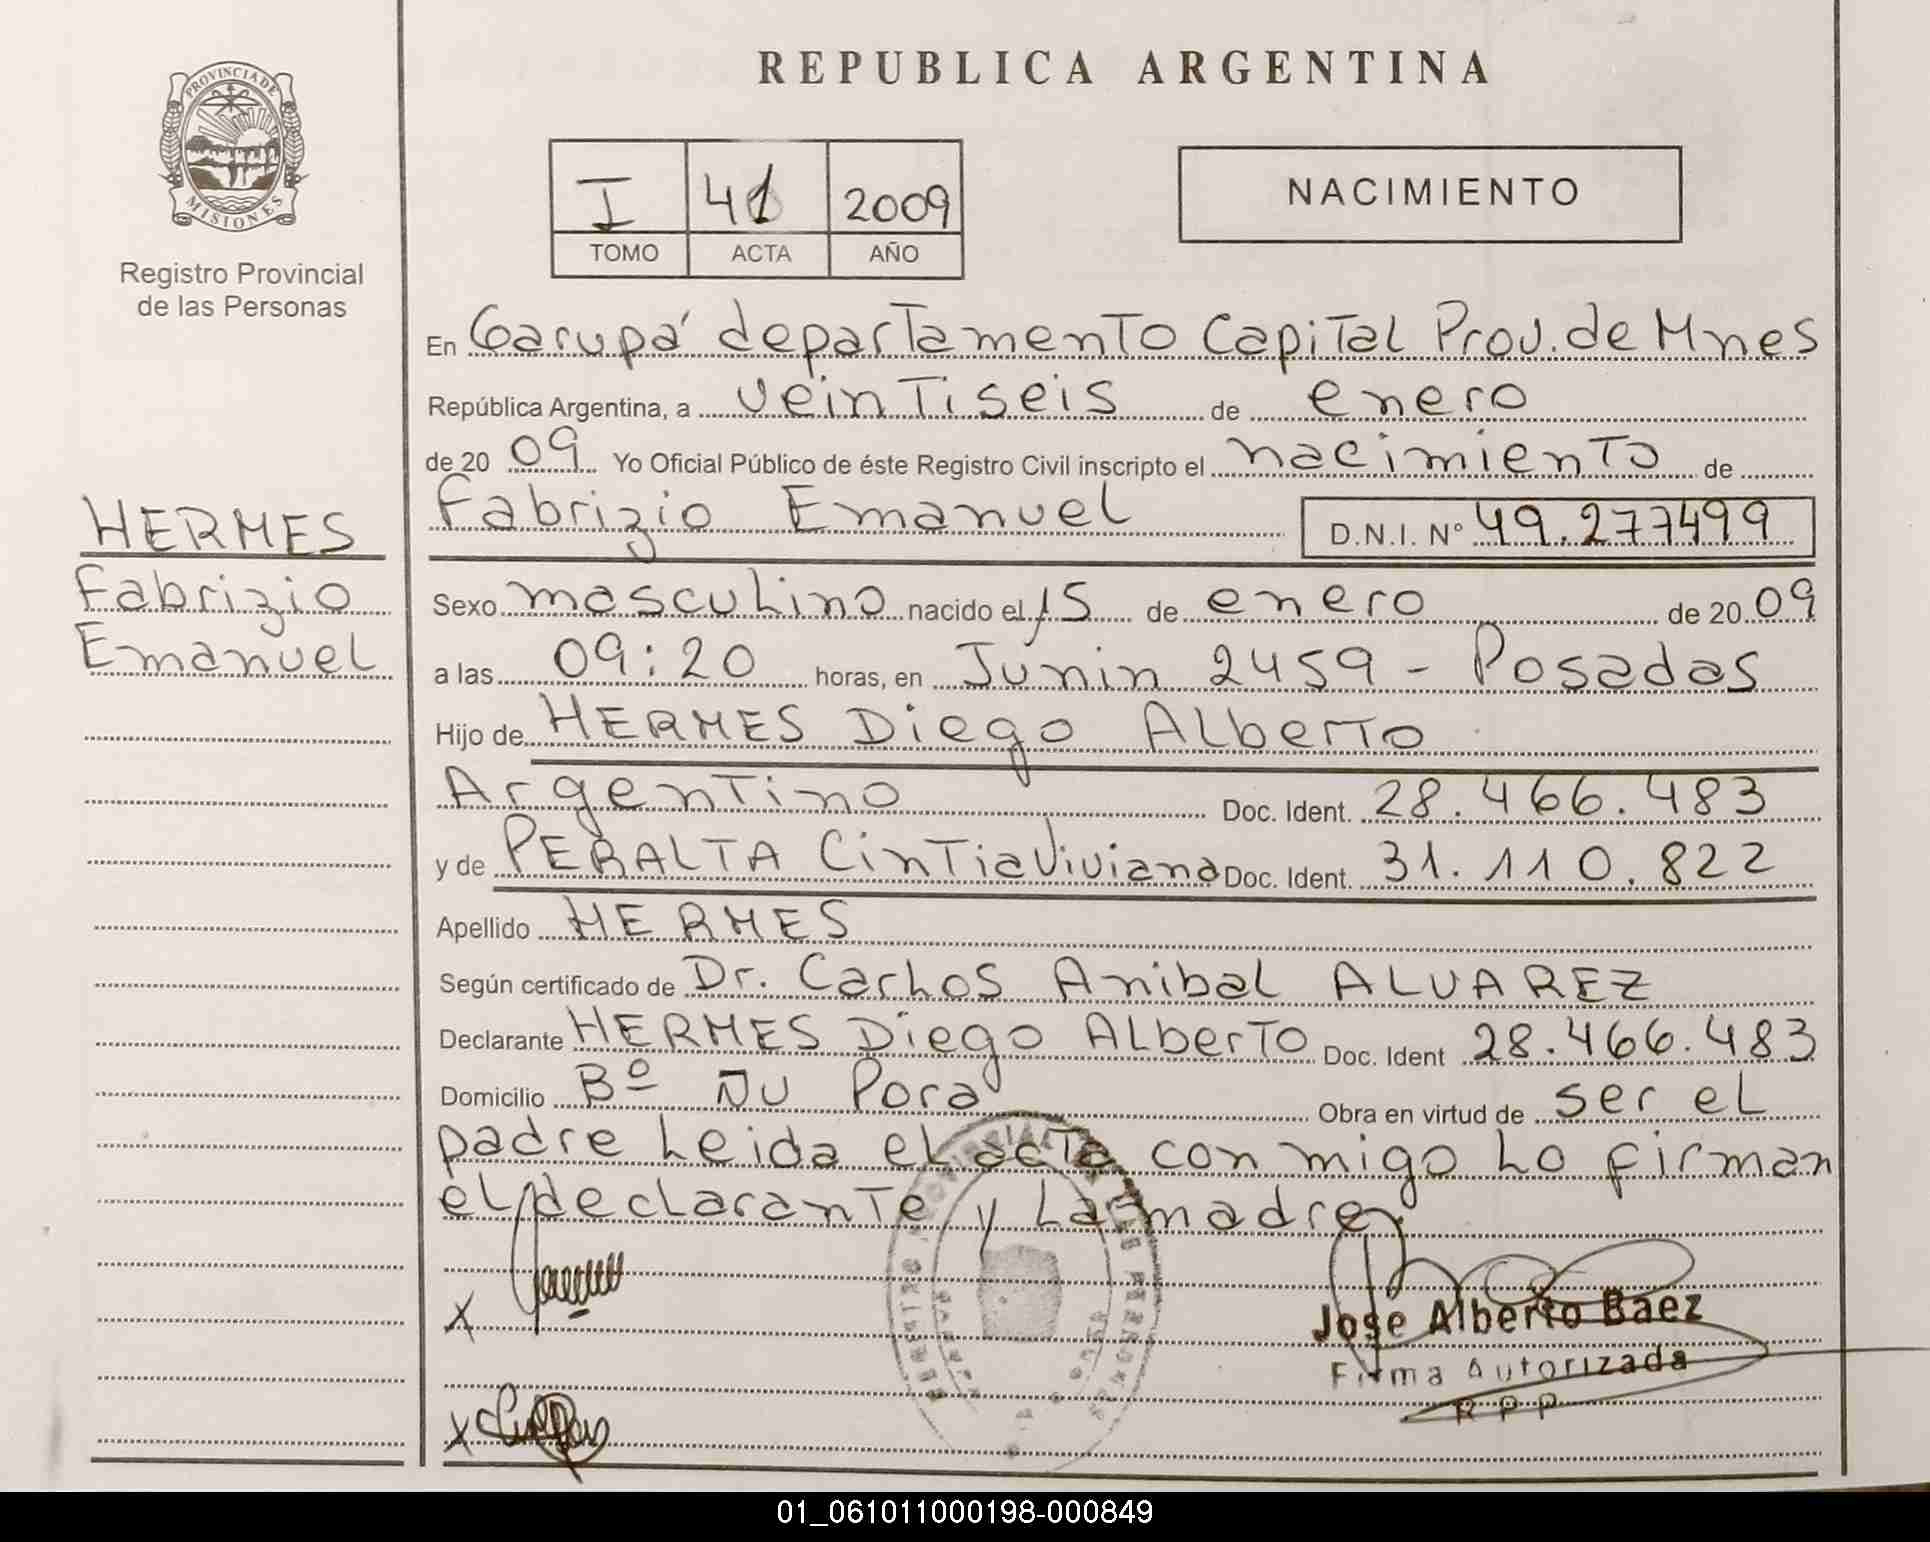 REPUBLICA ARGENTINA
PROVINCIA DE
MISIONES
Registro Provincial
de las Personas
I 41 2009
TOMO ACTA AÑO
NACIMIENTO
En Garupá departamento Capital Prov. de Mnes
República Argentina, a veintiseis de enero
de 20 09 Yo Oficial Público de éste Registro Civil inscripto el nacimiento de
Fabrizio Emanuel D.N.I. Nº 49.277499
HERMES
Fabrizio
Emanuel
Sexo masculino nacido el 15 de enero de 20 09
a las 09:20 horas, en Junin 2459 - Posadas
Hijo de HERMES Diego Alberto
Argentino Doc. Ident. 28.466.483
y de PERALTA Cintia Viviana Doc. Ident. 31.110.822
Apellido HERMES
Según certificado de Dr. Carlos Anibal ALVAREZ
Declarante HERMES Diego Alberto Doc. Ident 28.466.483
Domicilio Bº ÑU Pora Obra en virtud de ser el
padre Leida el acta con migo lo firman
el declarante y La madre
X
Jose Alberto Baez
Firma Autorizada
R P P
X
01_061011000198-000849